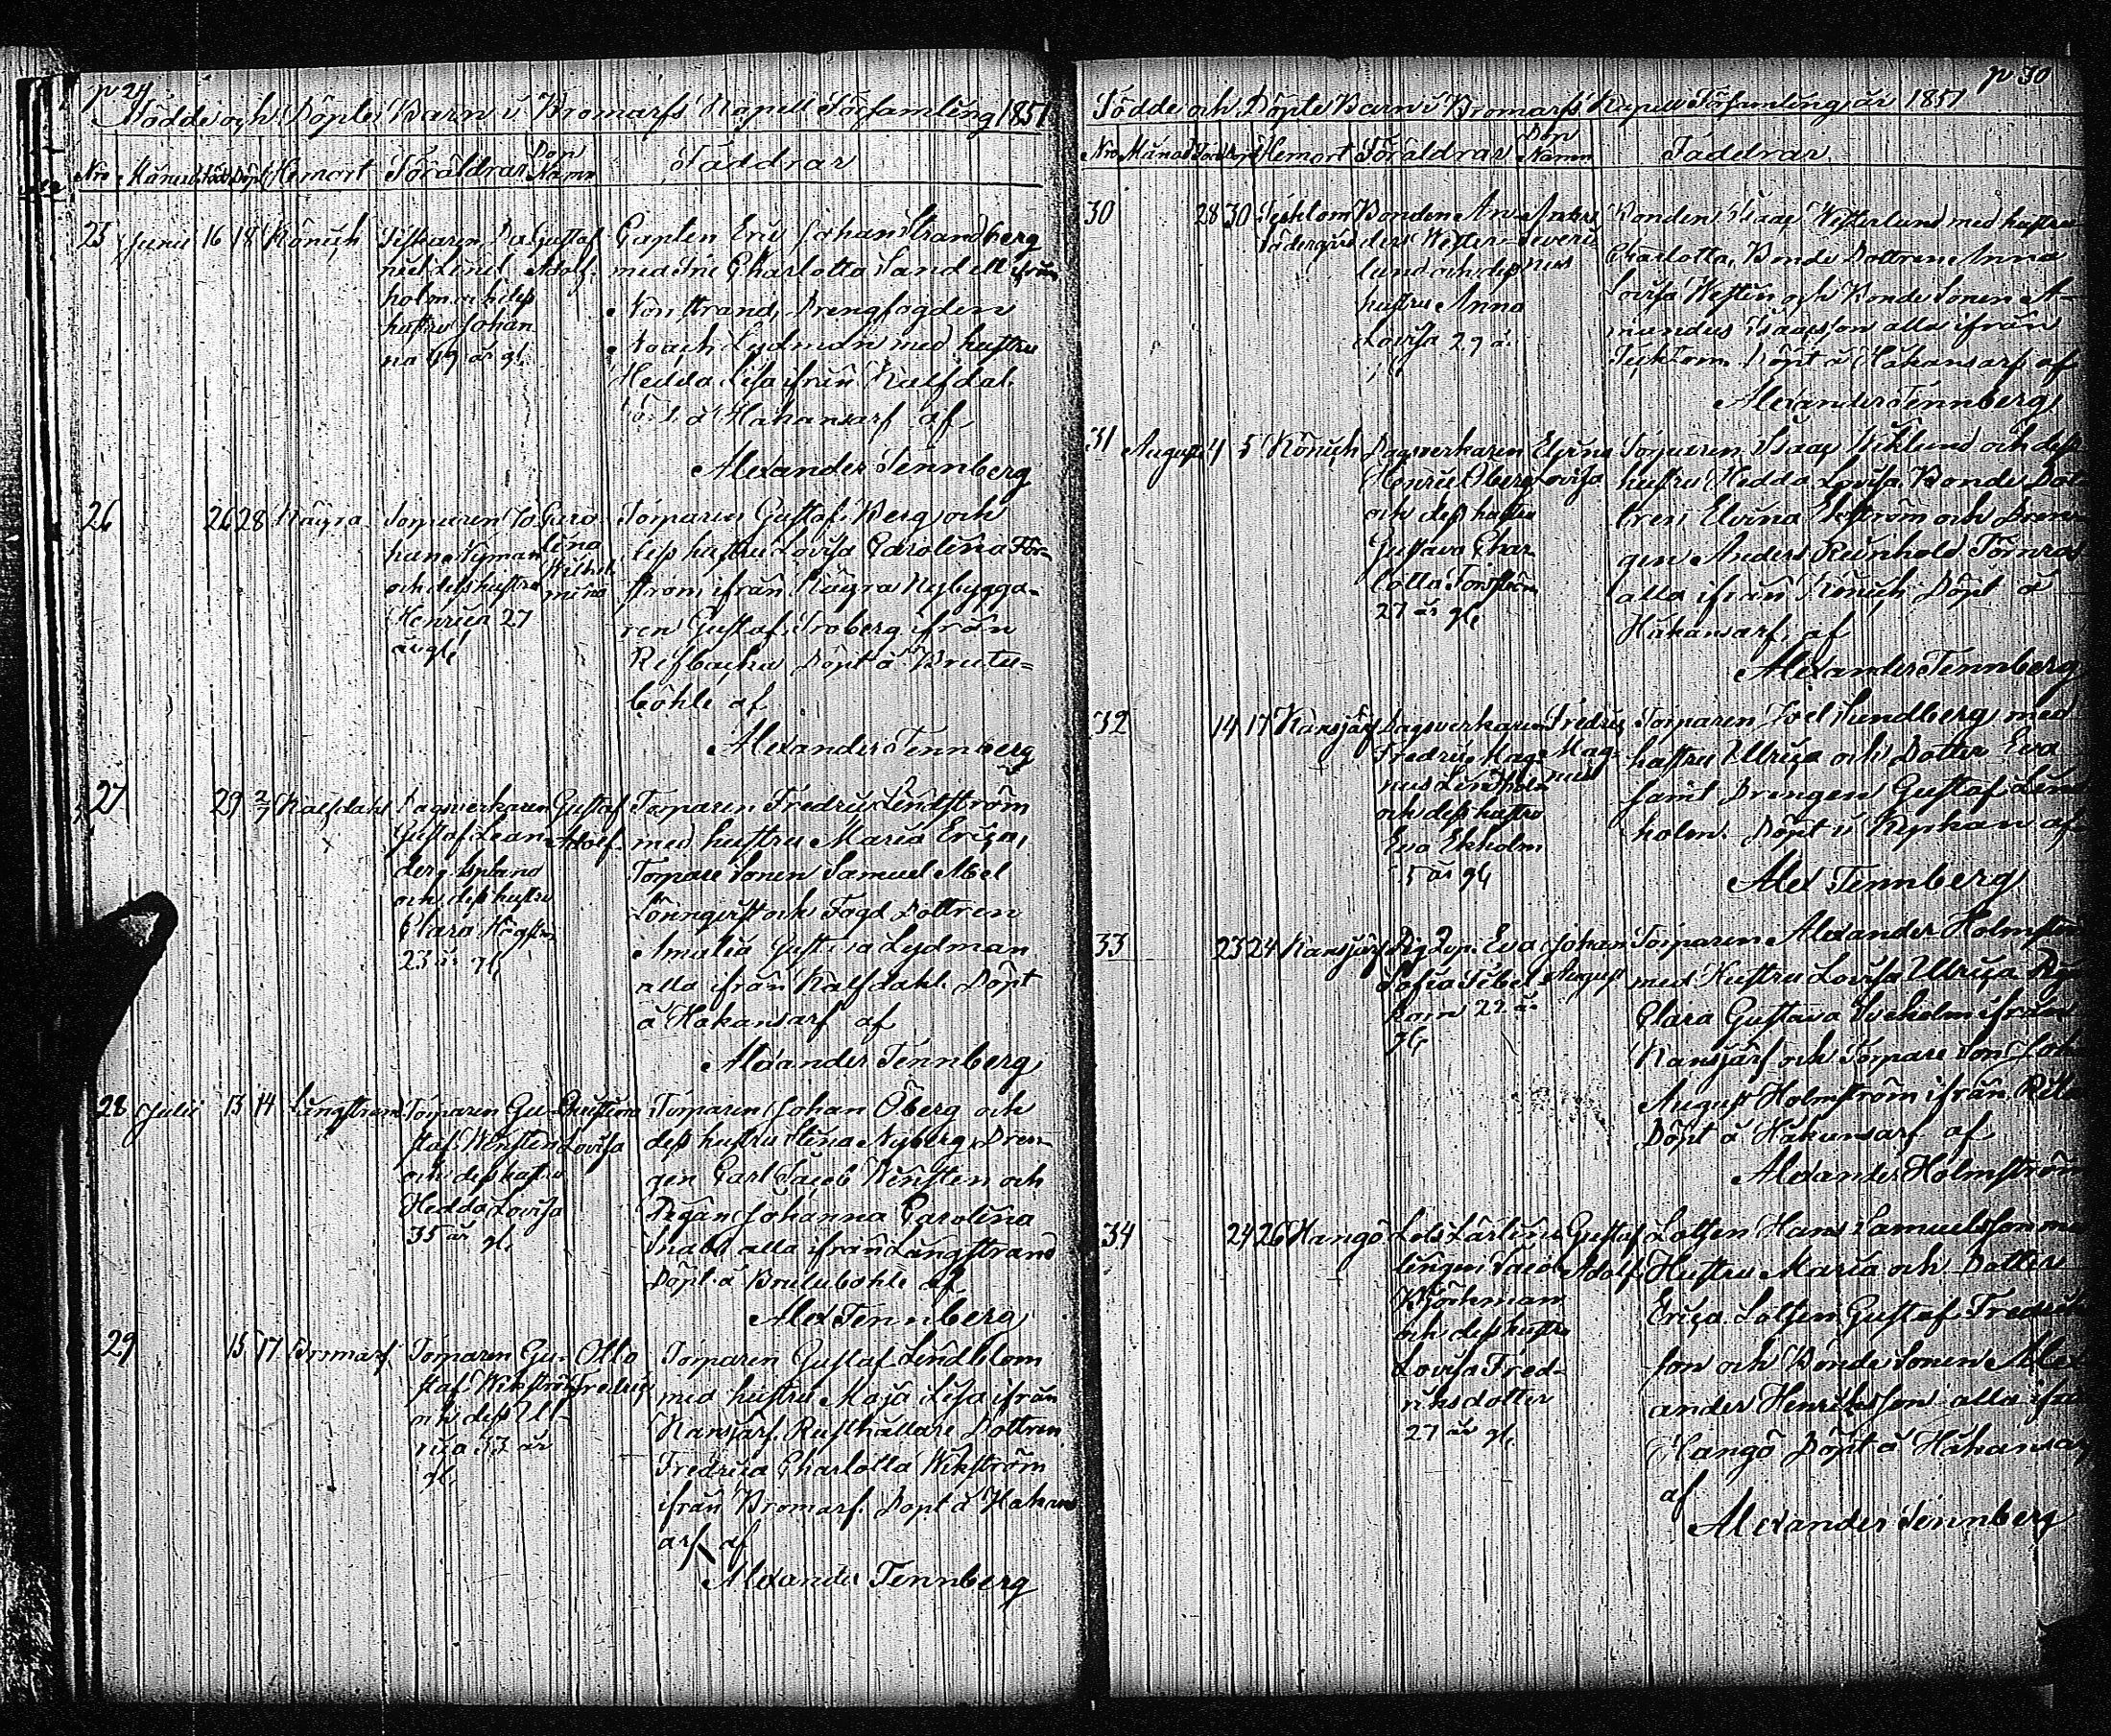 p 29
Födde och Döpte Barn i Bromarfs Kapell Församling 1851
Nro Månad Född Döpt Hemort Föräldrar Don Namn Faddrar
25 Junii 16 18 Rönick
Gustaf
Adolf
holm och dess
hustru Johan-
na 49 år gl.
Capten Eric Johan Strandberg
med Charlotta Sandell ifrån
Norrstrand, Drengfogden
Noach Lydman med hustru
Hedda Lisa ifrån Kalfdal
å Håkansarf af
Alexander Tennberg
26 26 28 Rågra
Torparen Jo-
han Nyman
och dess hustru
Henrica 27
år gl.
Caro-
lina
Wilhel-
mina
Torparen Gustaf Berg och
dess hustru Lovisa Carolina För-
ström ifrån Rågra Nybygga-
ren Gustaf Broberg ifrån
Rifbacka Döpt å
böhle af
Alexander Tennberg
27 29 2/7 Kalfdahl
Dagsverkaren
Gustaf Lean-
der
och dess hustru
Clara
23 år gl.
Gustaf
Adolf
Torparen Fredric Lindström
med hustru Maria Erica,
Torpare Sonen Samuel Abel
Lönnqvist och Fogd Dottren
Amalia Gustava Lydman
alla ifrån Kalfdahl Döpt
å Håkansarf af
Alexander Tennberg
28 Julii 13 14 Långstrand
Torparen Gu-
staf Wensten
och dess hustru
Hedda Lovisa
35 år gl.
Christina
Lovisa
Torparen Johan Öberg och
dess hustru Stina Nyberg, Dren-
gen Carl Jacob Wensten och
Pigan Johanna Carolina
alla ifrån Långstrand
Döpt å af
Alex Tennberg
29 15 17 Bromarf
Torparen Gu-
staf Wikström
och dess Ul-
rica 33 år
gl.
Otto
Fredric
Torparen Gustaf Lindblom
med hustru Maja Lisa ifrån
Kansjärf Rusthållare Dottren
Fredrica Charlotta Wikström
ifrån Bromarf Döpt å Håkans
arf af
Alexander Tennberg
p 30
Födde och Döpte Barn i Bromarfs Kapell Församling år 1851
Nro Månad Född Döpt Hemort Föräldrar Don Namn Faddrar
30 28 30
Södergård
Bonden An-
ders Wester-
lund och dess
hustru Anna
Lovisa 29 år
Anders
Severi-
nus
Bonden Isaac Westerlund med hustru
Charlotta, Bonde Dottren Anna
Lovisa Westen och Bonde Sonen A-
mandus Isaacsson alla ifrån
Döpt å Håkansarf af
Alexander Tennberg
31 Augusti 4 5 Rönick
Dagsverkaren
Henric Öberg
och dess hustru
Gustava Char-
lotta
27 år gl.
Lovisa
Torparen Isaac Wiklund och dess
hustru Hedda Lovisa Bonde Dot
tren Elvina Ekström och Dren-
gen Anders Reinhold Törnros
alla ifrån Rönick Döpt å
Håkansarf af
Alexander Tennberg
32 14 17 Kansjärf
Dagsverkaren
Fredric Mag-
nus Lindholm
och dess hustru
Eva Ekholm
5 år gl.
Fredric
Mag-
nus
Torparen Joel Sundberg med
hustru Ulrica och Dotter Eva
samt Drengen Gustaf Lind
holm. Döpt i Kyrkan af
Alex Tennberg
33 23 24 Kansjärf
Eva
Sofia
22 år
gl.
Johan
August
Torparen Alexander Holmström
med Hustru Lovisa Ulrica
Clara Gustava ifrån
Kansjärf och Torpare Son Joh
August Holmström ifrån
Döpt å Håkansarf af
Alexander Holmström
34 24 26 Hangö
Lots Lärlin-
lingen Jacob
Björkman
och dess hustru
Lovisa Fred-
riksdotter
27 år gl.
Gustaf
Adolf
Lotsen Hans Samuelsson med
Hustru Maria och Dotter
Erica Lotsen Gustaf Fredriks
son och Bonde Sonen Alex
ander Henriksson alla ifrån
Hangö Döpt å Håkansarf
af
Alexander Tennberg